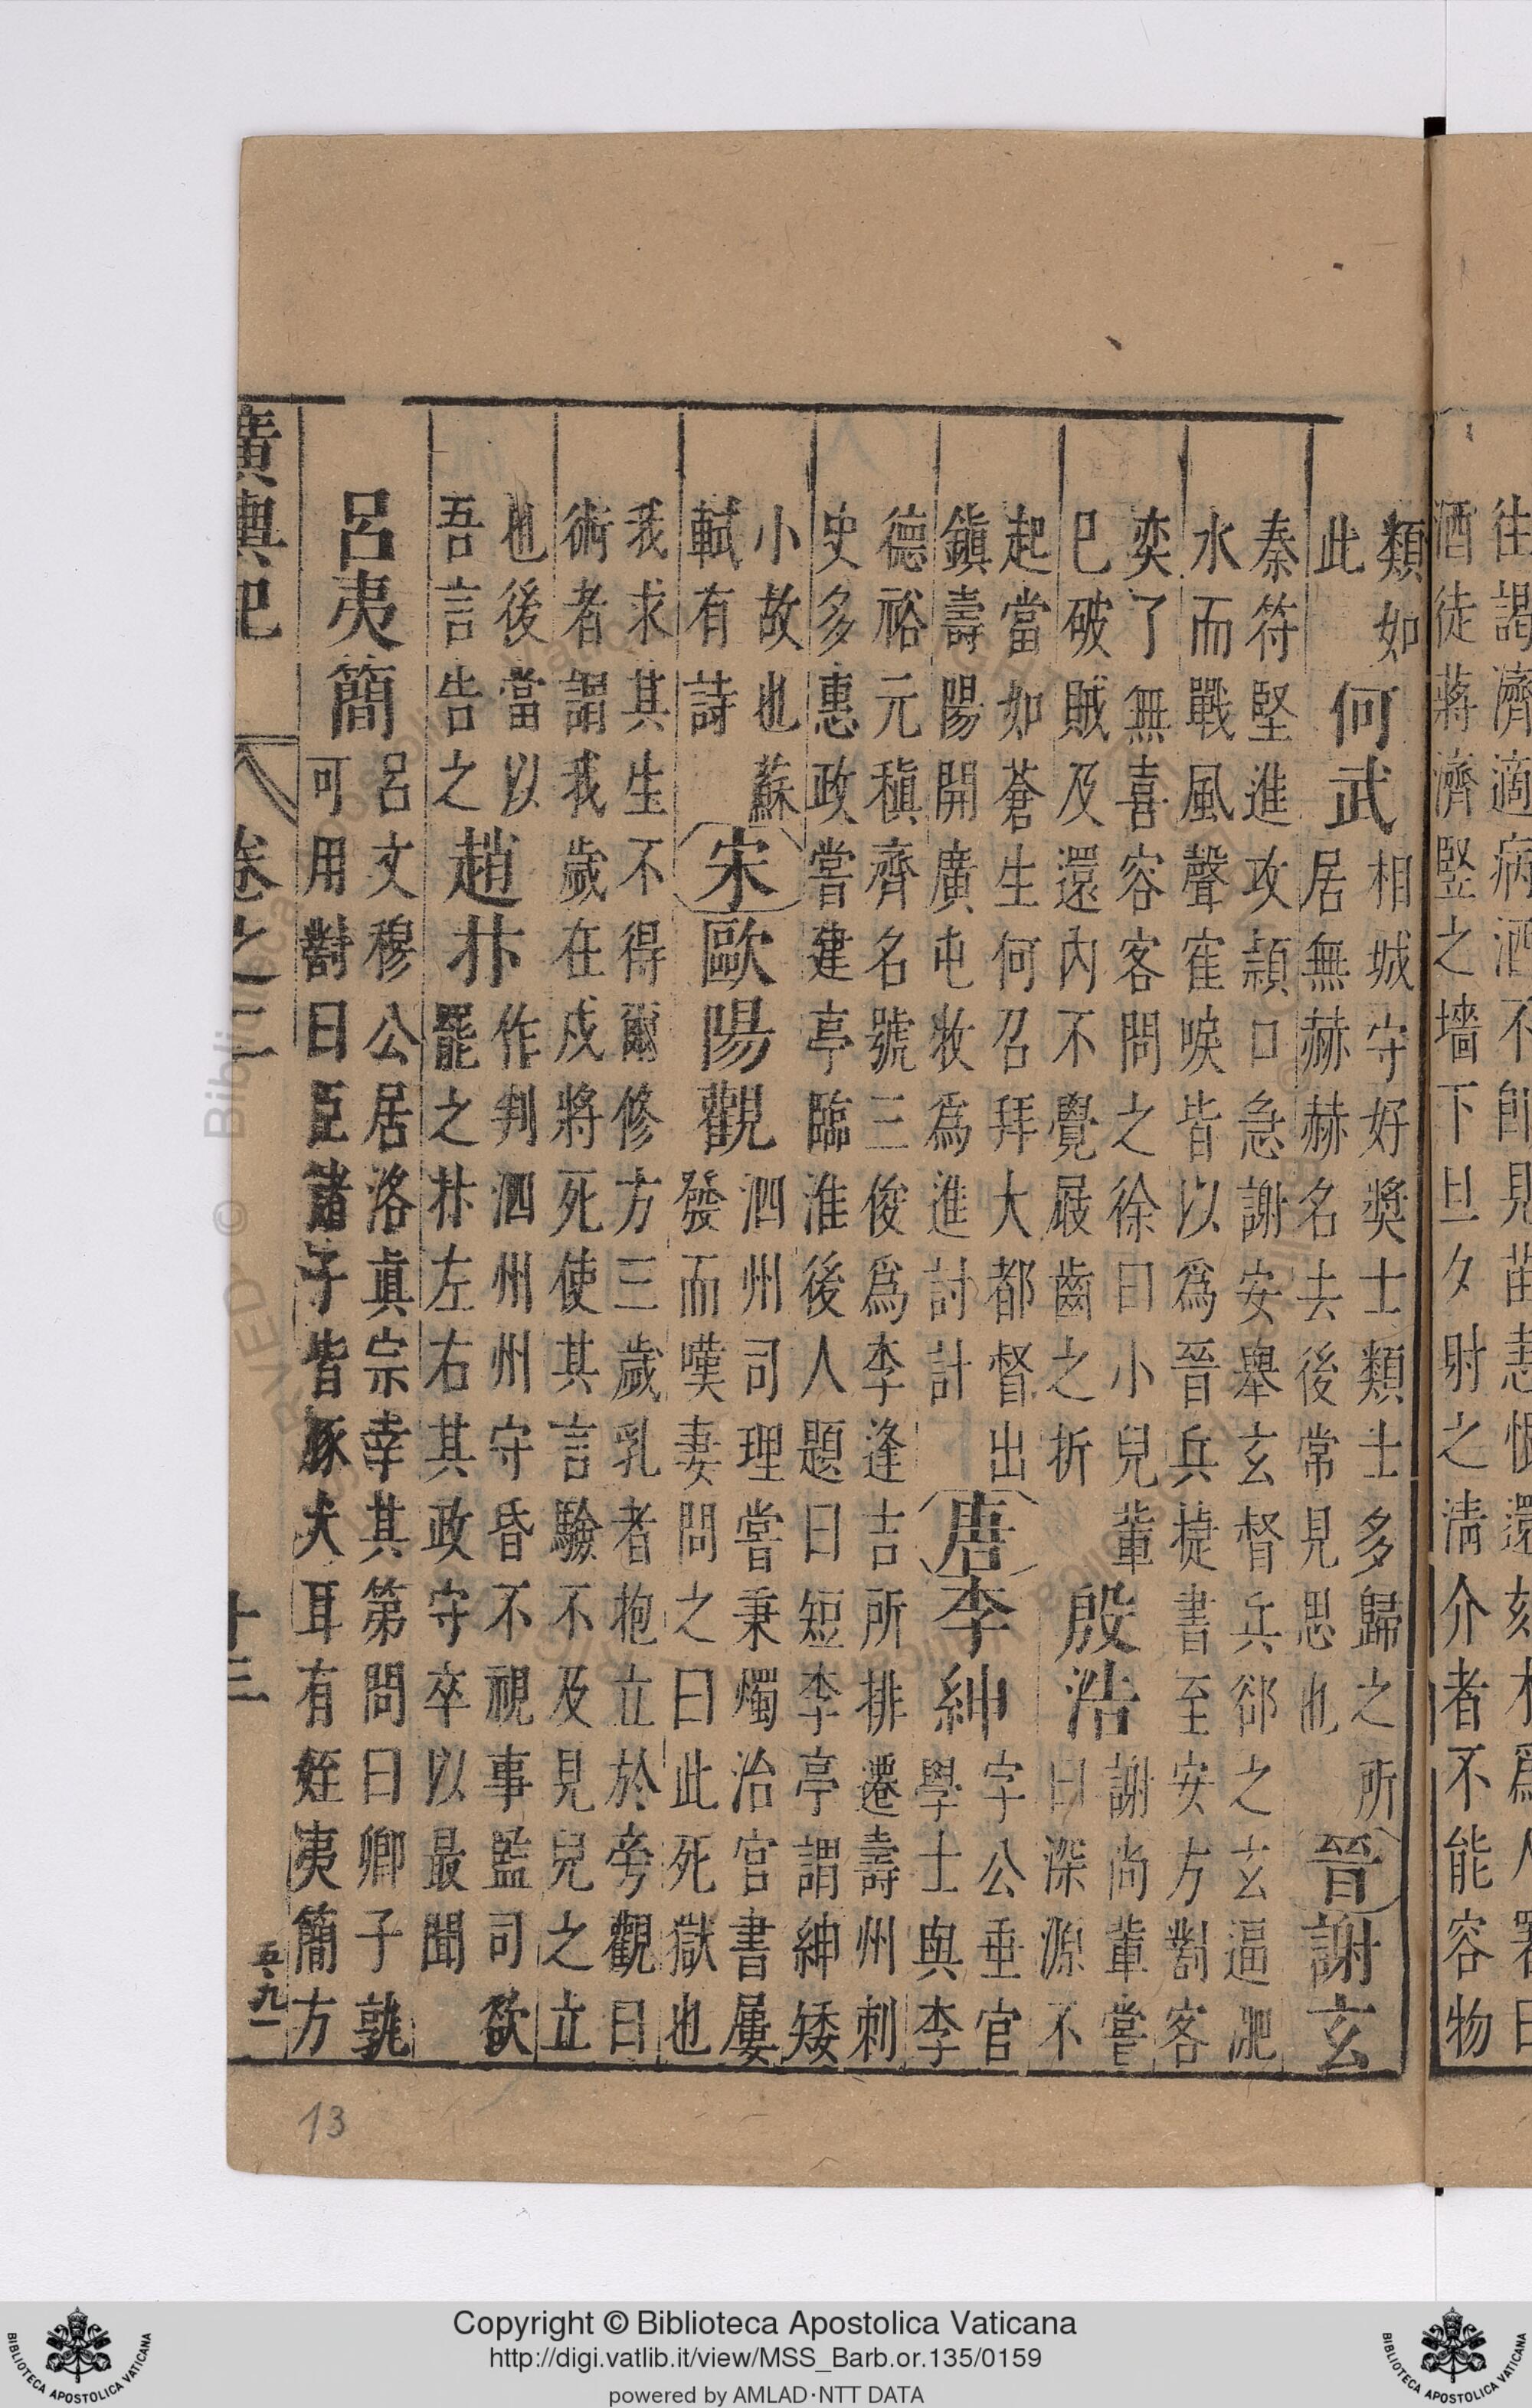 往謁濟適病酒不即見苗恚恨還刻木爲人署曰
酒徒蔣濟竪之墻下旦夕射之清介者不能容物
類如
此
何武
相城守好奬士類士多歸之所
居無赫赫名去後常見思也
晉謝玄
秦符堅進攻潁口急謝安舉玄督兵郤之玄逼淝
水而戰風聲隺唳皆以爲晉兵捷書至安方對客
奕了無喜容客問之徐曰小兒輩
巳破賊及還内不覺屐齒之折
殷浩
謝尚輩嘗
曰深源不
起當如蒼生何召拜大都督出
鎮壽陽開廣屯牧爲進討計
唐李紳
字公垂官
學士與李
德裕元稹齊名號三俊爲李逢吉所排遷壽州刺
史多惠政嘗建亭臨淮後人題曰短李亭謂紳矮
小故也蘇
軾有詩
宋歐陽觀
泗州司理嘗秉燭治官書屢
發而嘆妻問之曰此死獄也
我求其生不得爾修方三歲乳者抱立於旁觀曰
術者謂我歲在戍將死使其言驗不及見兒之立
也後當以
吾言告之
趙抃
作判泗州州守昏不視事監司欲
罷之抃左右其政守卒以最聞
呂夷簡
呂文穆公居洛眞宗幸其第問曰卿子孰
可用對曰臣諸子皆豚犬耳有姪夷簡方
廣輿記 卷之二 十三
五九一
13
Copyright © Biblioteca Apostolica Vaticana
http://digi.vatlib.it/view/MSS_Barb.or.135/0159
powered by AMLAD·NTT DATA
BIBLIOTECA APOSTOLICA VATICANA
BIBLIOTECA APOSTOLICA VATICANA